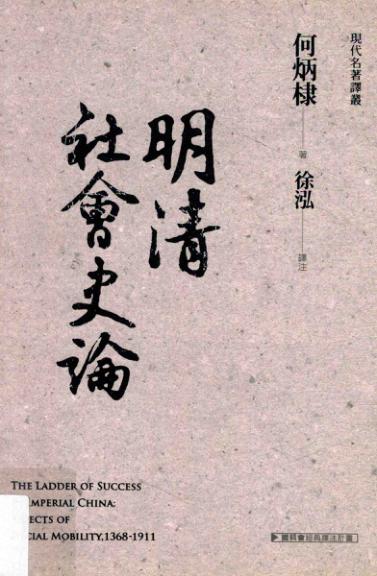 現代名著譯叢
何炳棣 著 徐泓 譯注
明清
社會史論
THE LADDER OF SUCCESS
IMPERIAL CHINA:
ECTS OF
CIAL MOBILITY,1368-1911
國科會經典譯注計畫